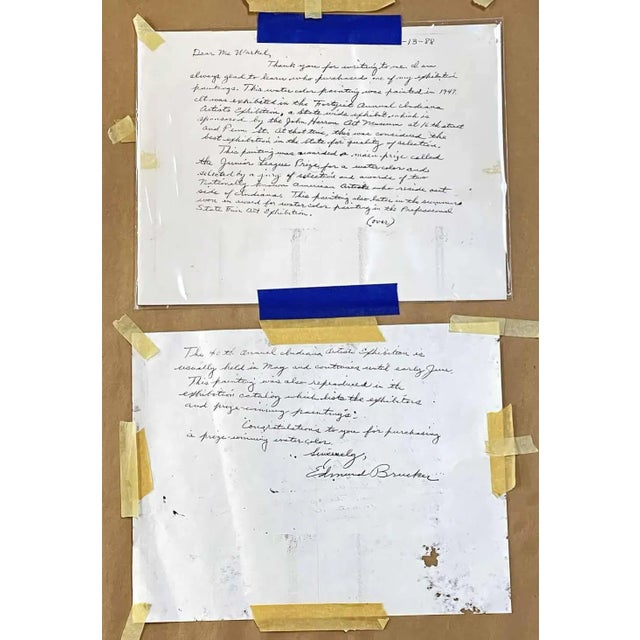 -13-88
Dear Mr.
Thank you for writing to me. I am
always glad to learn who purchases one of my exhibition
paintings. This water color painting was painted in 1947.
It was exhibited in the Fortieth Annual Indiana
Artists Exhibition, a State wide exhibit, which is
sponsored by the John Herron Art Museum at 16th street
and Penn St. At that time, this was considered the
best exhibition in the State for quality of selection.
This painting was awarded a main prize called
the Junior League Prize, for a water color and
selected by a jury of selection and awards of two
Nationally known American Artists who reside out
side of Indiana. This painting also later in the summer
won an award for water color painting in the Professional
State Fair Art Exhibition.
(over)
The 40th annual Indiana Artists Exhibition is
usually held in May and continues until early June.
This painting was also reproduced in the
exhibition catalog which lists the exhibitors
and prize-winning paintings.
Congratulations to you for purchasing
a prize-winning water color.
Sincerely,
Edmund Brucker